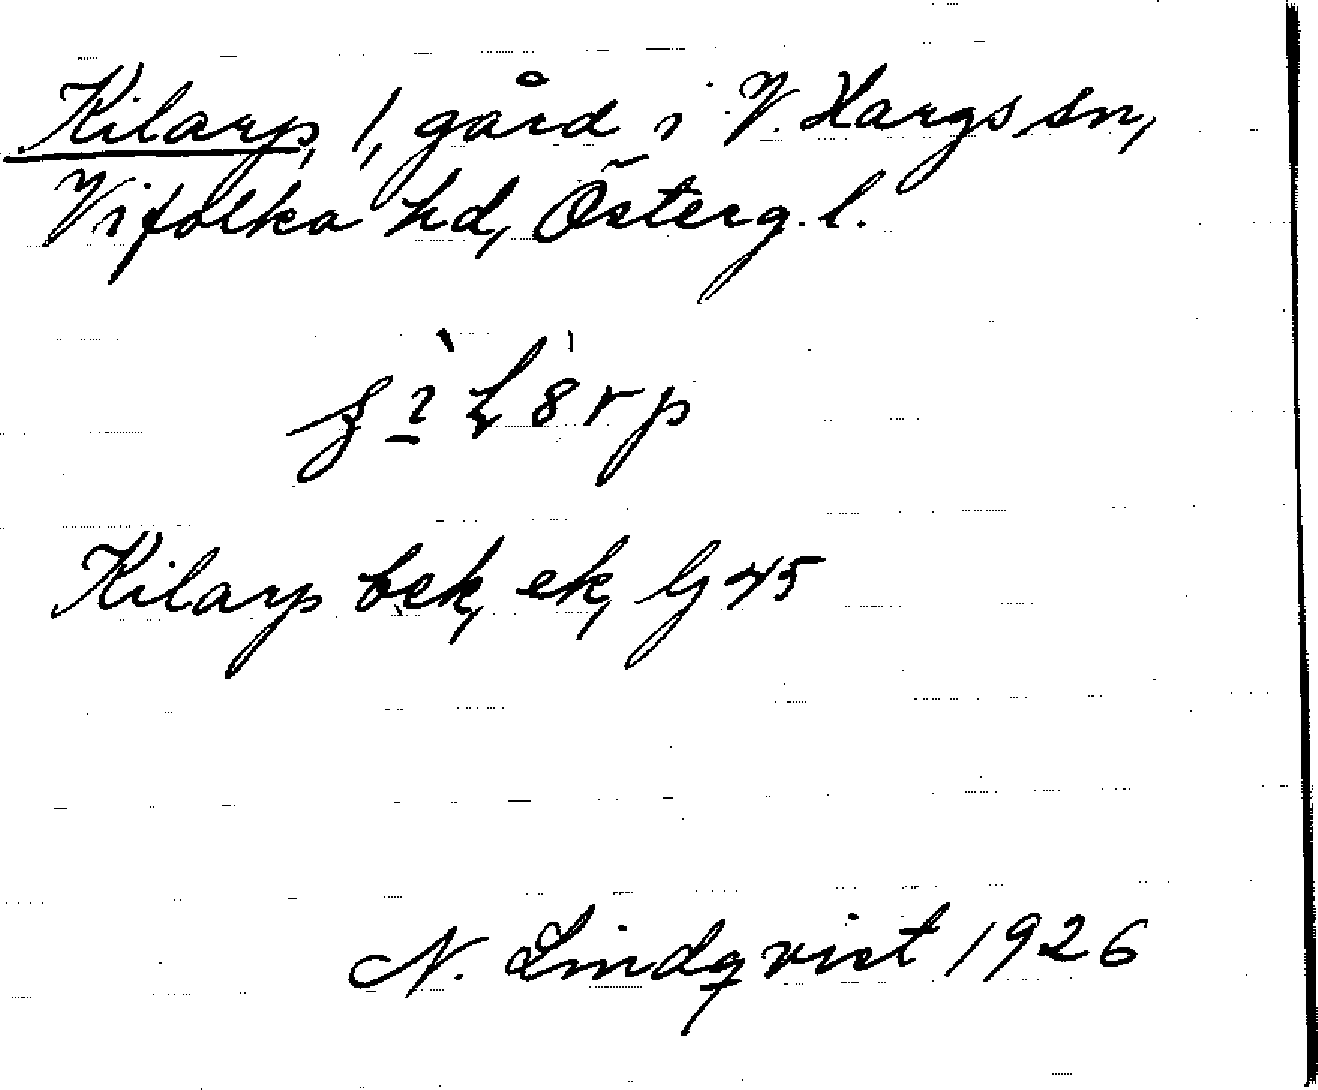 Kilarp, 1, gård i V. Hargs sn,
Vifolka hd, Österg. l.
Kilarp bek, ek, Gj 45
N. Lindqvist 1926